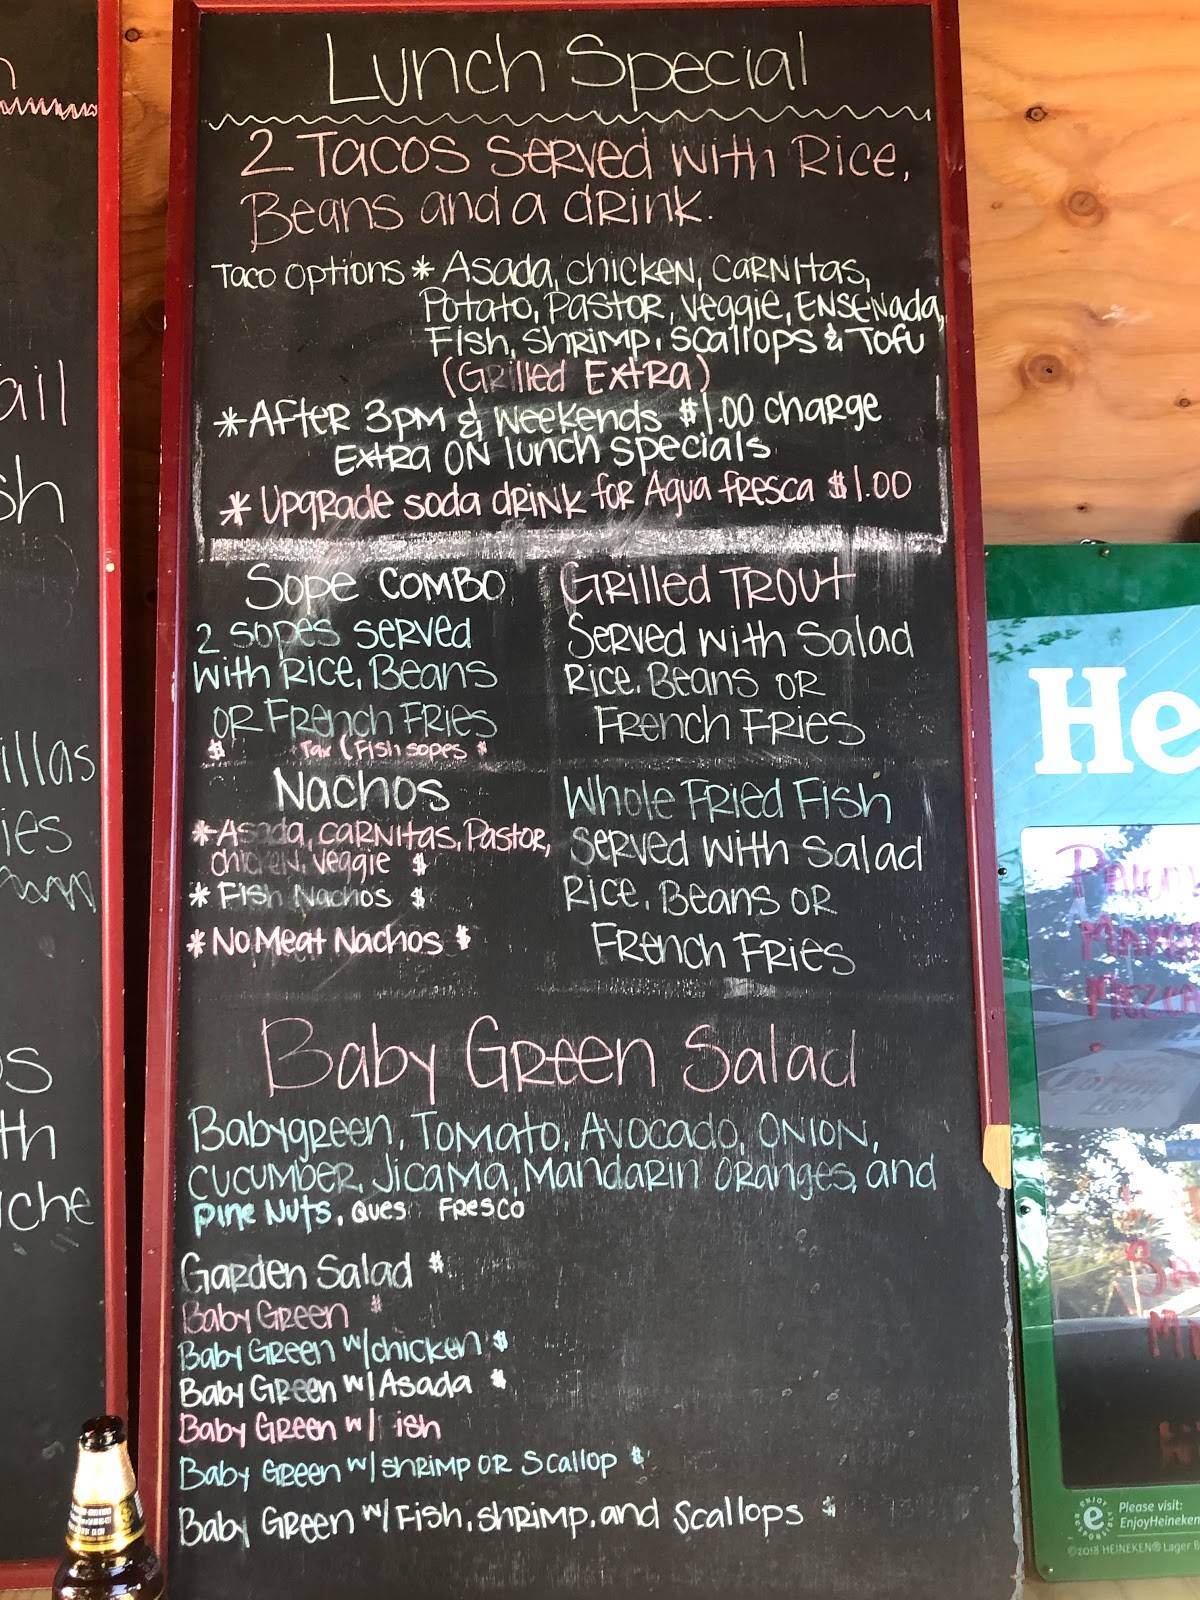 Lunch Special
2 Tacos served with Rice,
Beans and a drink.
Taco Options * Asada, chicken, Carnitas,
Potato, Pastor, Veggie, Ensenada,
Fish, Shrimp, Scallops & Tofu
(Grilled Extra)
*After 3pm & Weekends $1.00 charge
Extra on lunch specials
* Upgrade soda drink for Agua fresca $1.00
Sope Combo
2 sopes served
with Rice, Beans
or French Fries
$ Tax (Fish sopes $
Grilled Trout
Served with Salad
Rice, Beans or
French Fries
Nachos
*Asada, Carnitas, Pastor,
chicken, Veggie $
* Fish Nachos $
* No Meat Nachos $
Whole Fried Fish
Served with Salad
Rice, Beans or
French Fries
Baby Green Salad
Babygreen, Tomato, Avocado, Onion,
Cucumber, Jicama, Mandarin oranges, and
Pine Nuts, Ques Fresco
Garden Salad $
Baby Green $
Baby Green w/chicken $
Baby Green w/Asada $
Baby Green w/ ish
Baby Green w/shrimp or Scallop $
Baby Green w/Fish, shrimp, and Scallops $
ail
sh
illas
ies
os
th
iche
He
ENJOY
e
Please visit:
EnjoyHeineken
©2018 HEINEKEN® Lager B